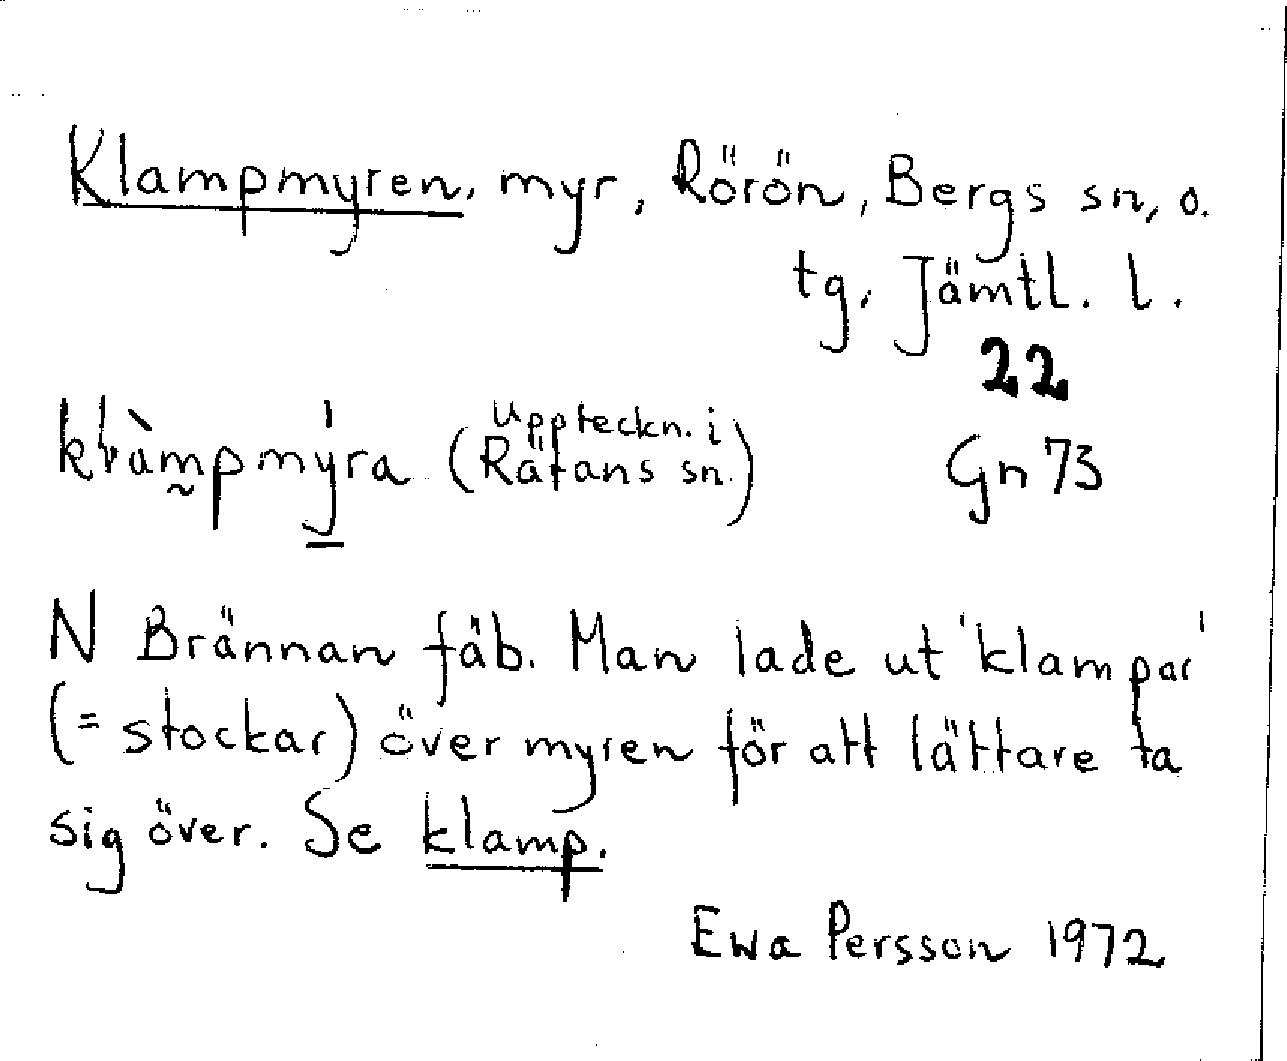 Klampmyren, myr, Rörön, Bergs sn, o.
tg, Jämtl. l.
22
klàmpmýra (Uppteckn. i Rätans sn.)
Gn 73
N Brännan fäb. Man lade ut 'klampar'
(= stockar) över myren för att lättare ta
sig över. Se klamp.
Ewa Persson 1972